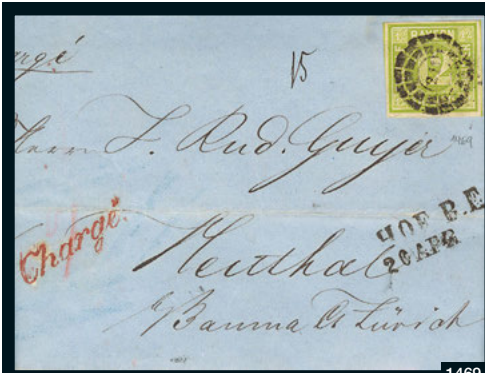 argé
15
BAYERN
12
Herrn J. Rud. Guyer
Chargé.
HOF B.E
20 APR
Neuthal
Bauma Ct Zürich
1469